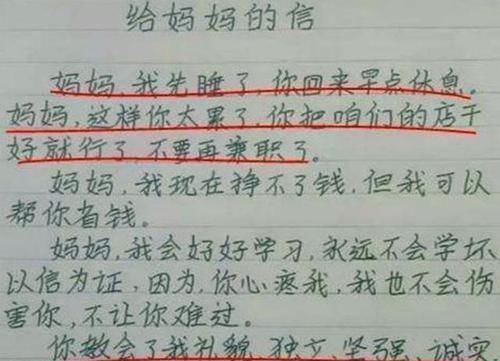 给妈妈的信
妈妈,我先睡了,你回来早点休息。
妈妈,这样你太累了,你把咱们的店干
好就行了,不要再兼职了。
妈妈,我现在挣不了钱,但我可以
帮你省钱。
妈妈,我会好好学习,永远不会学坏
以信为证,因为,你心疼我,我也不会伤
害你,不让你难过。
你教会了我礼貌、独立、坚强、诚实